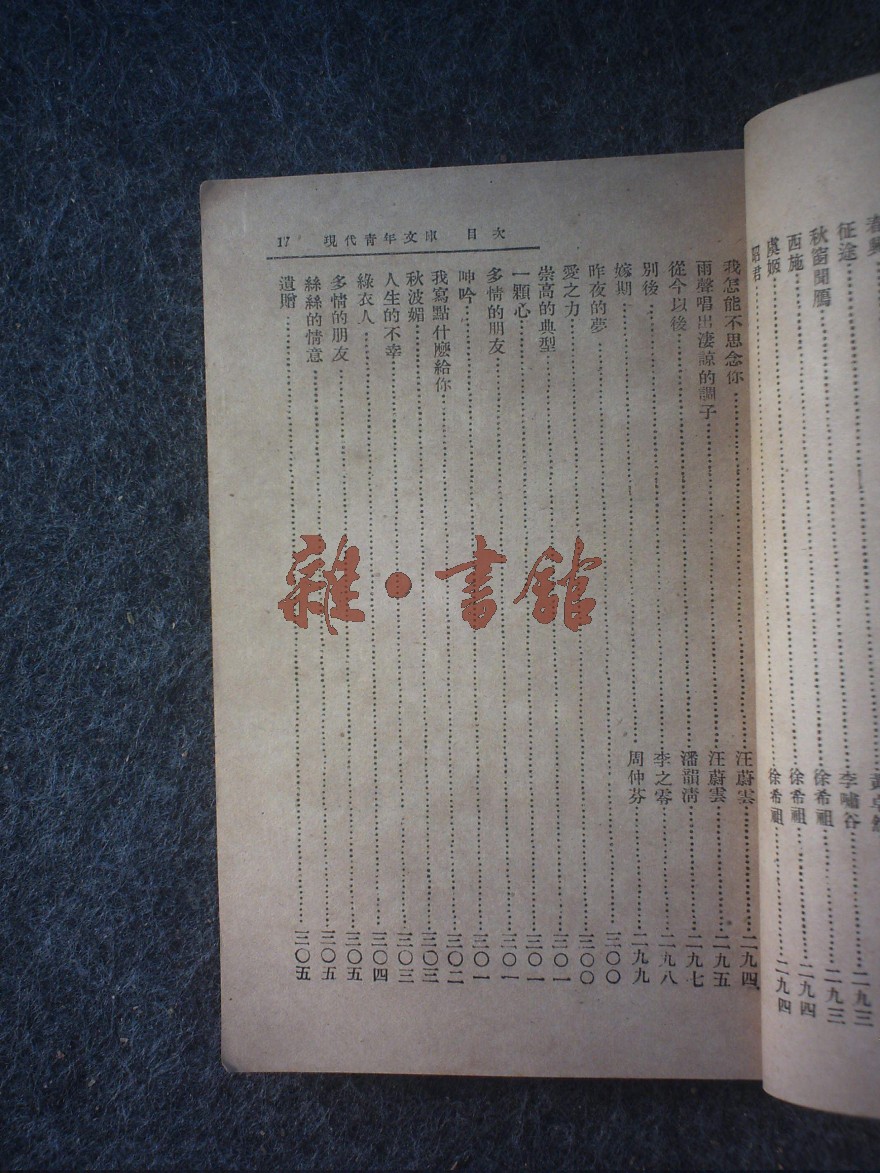 征途……李嘯谷……二九三
秋窗聞鴈……徐希祖……二九三
西施……徐希祖……二九四
虞姬……徐希祖……二九四
昭君
17 現代青年文庫 目次
我怎能不思念你……汪蔚雲……二九四
雨聲唱出淒諒的調子……汪蔚雲……二九五
從今以後……潘韻清……二九七
別後……李之零……二九八
嫁期……周仲芬……二九九
昨夜的夢……三〇〇
愛之力……三〇〇
崇高的典型……三〇一
一顆心……三〇一
多情的朋友……三〇一
呻吟……三〇一
我寫點什麼給你……三〇二
秋波媚……三〇三
人生的不幸……三〇三
綠衣人……三〇四
多情的朋友……三〇五
絲絲的情意……三〇五
遺贈……三〇五
雜·書館